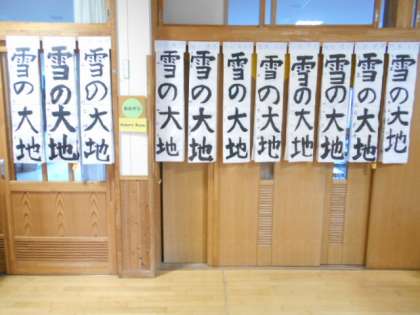 雪の大地
雪の大地
雪の大地
雪の大地
雪の大地
雪の大地
雪の大地
雪の大地
雪の大地
雪の大地
雪の大地